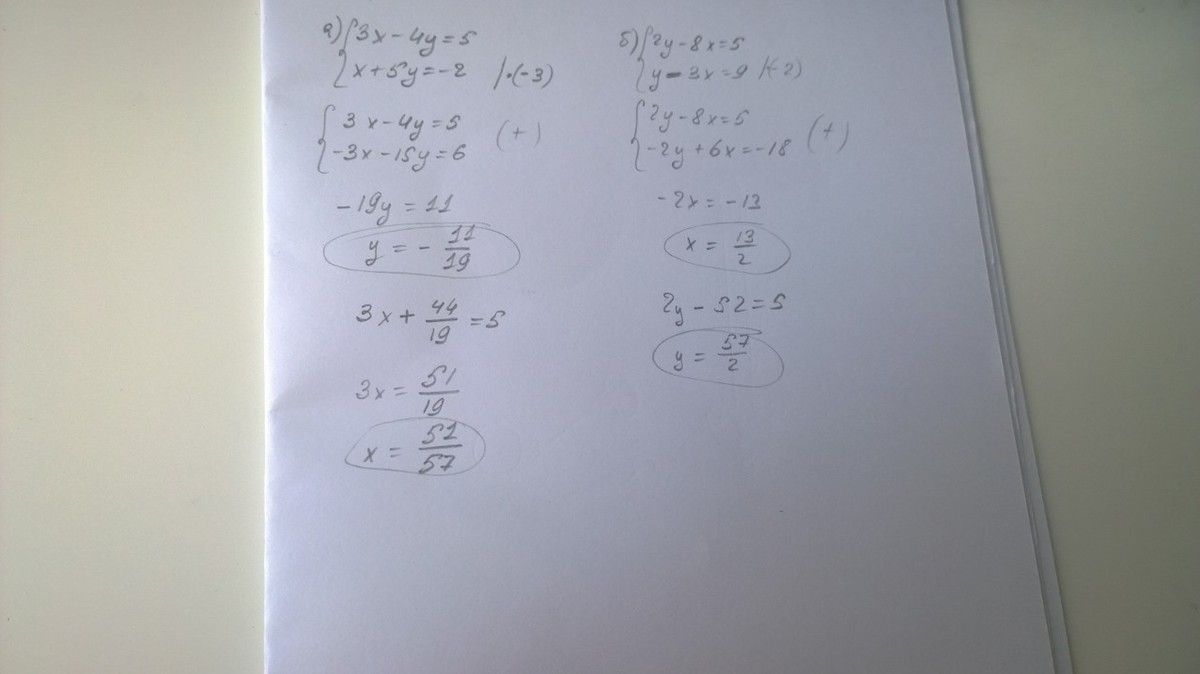 а) { 3x - 4y = 5
x + 5y = -2 | · (-3)
{ 3x - 4y = 5
-3x - 15y = 6 (+)
-19y = 11
y = - 11/19
3x + 44/19 = 5
3x = 51/19
x = 51/57
б) { 2y - 8x = 5
y - 3x = 9 | (-2)
{ 2y - 8x = 5
-2y + 6x = -18 (+)
-2x = -13
x = 13/2
2y - 52 = 5
y = 57/2